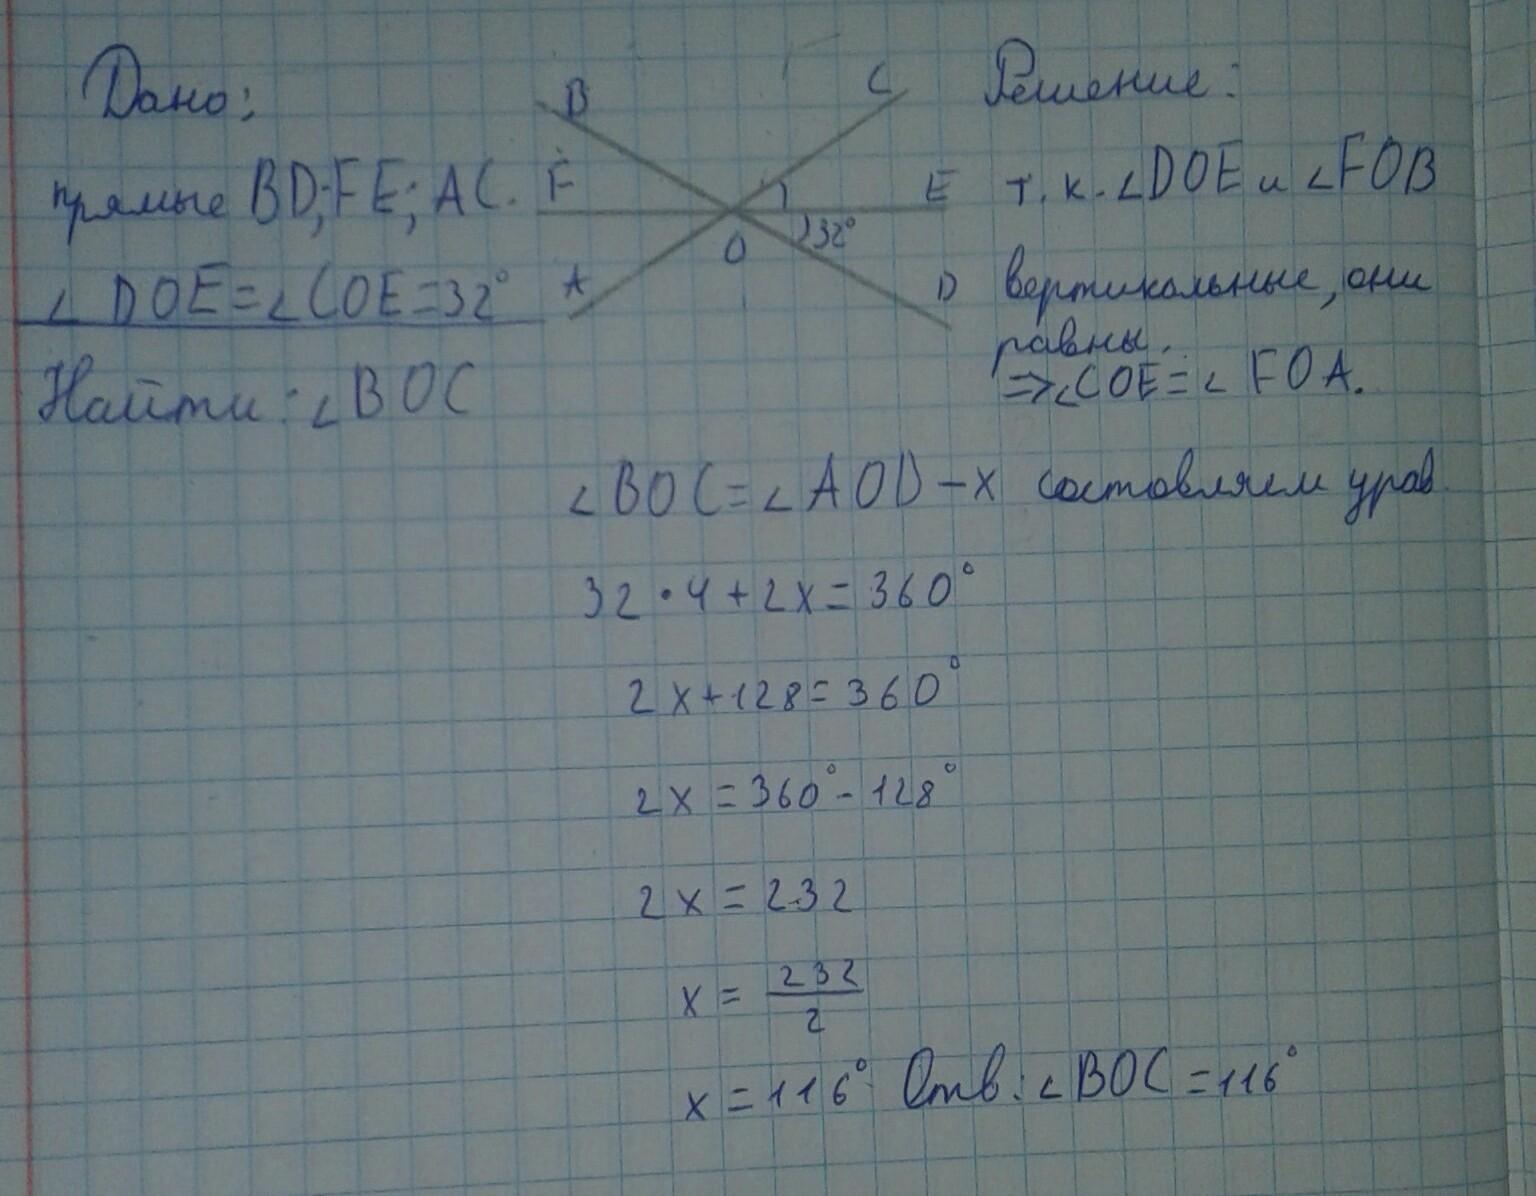 Дано:
прямые BD; FE; AC.
∠DOE=∠COE=32°
Найти: ∠BOC
B
C
F
E
O
32°
A
D
Решение:
т.к. ∠DOE и ∠FOB
вертикальные, они
равны.
⇒∠COE=∠FOA.
∠BOC=∠AOD-x составляем урав.
32·4+2x=360°
2x+128=360°
2x=360°-128°
2x=232
x=232/2
x=116° Отв: ∠BOC=116°